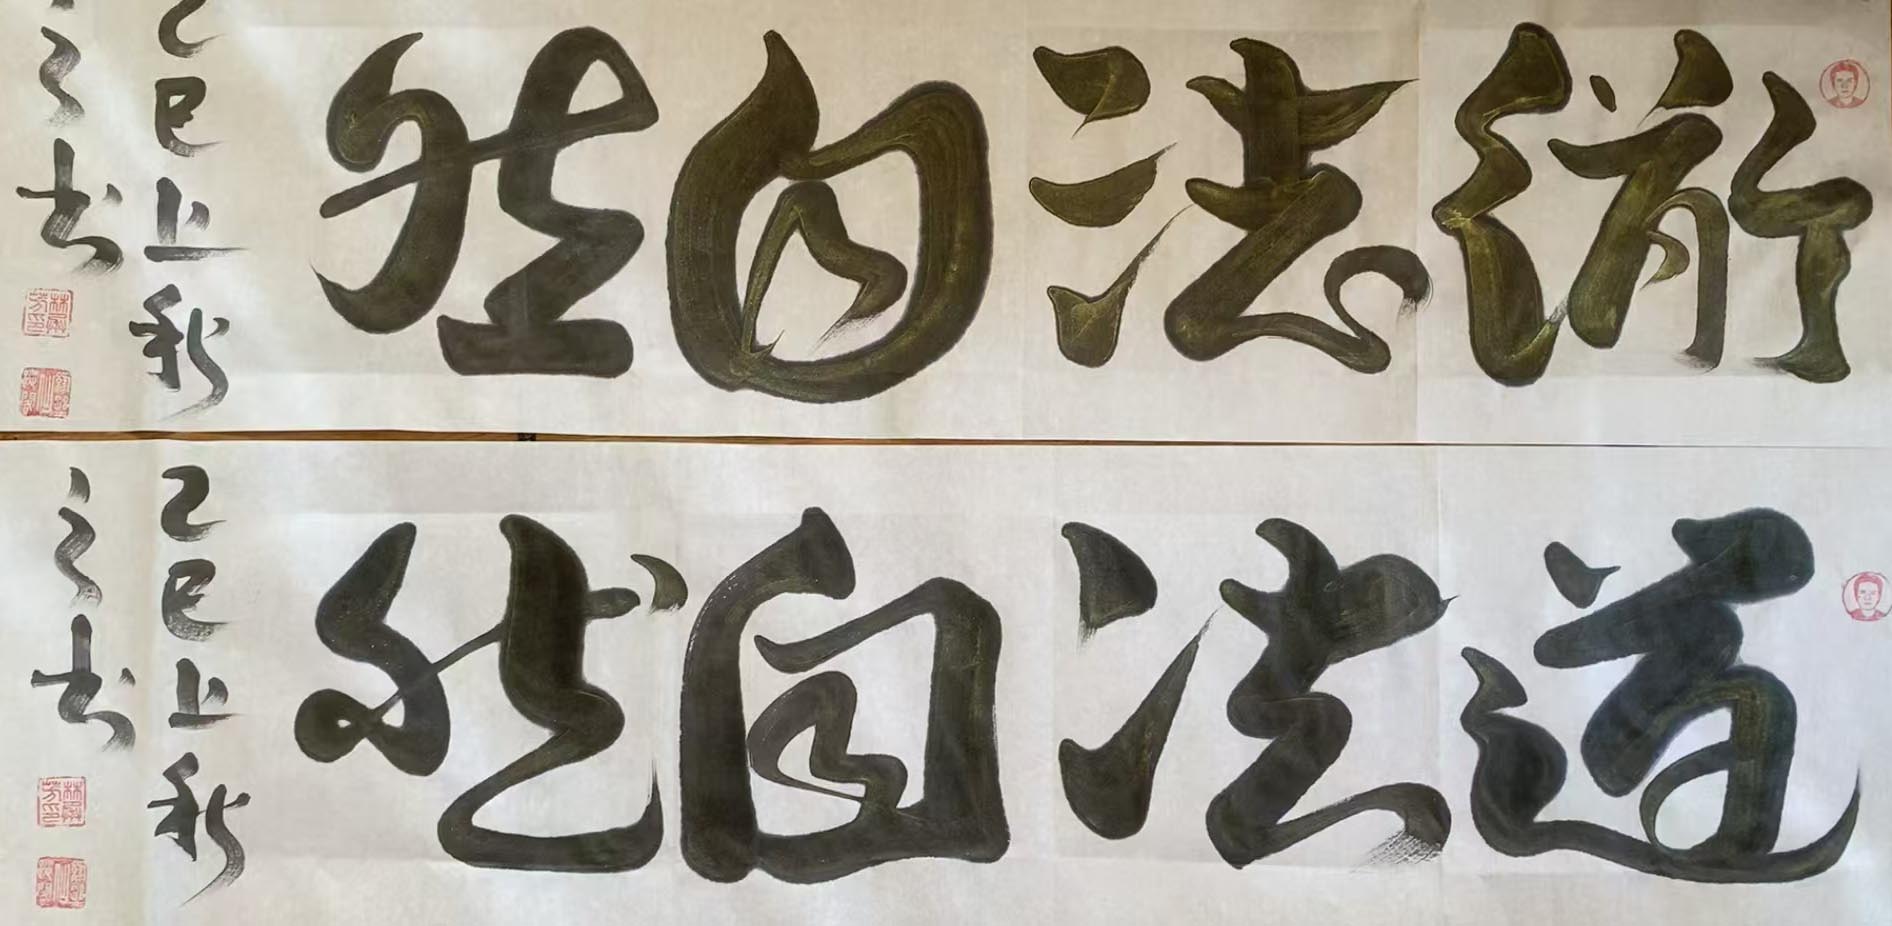 衜法自然
乙巳上秋
之书
道法自然
乙巳上秋
之书